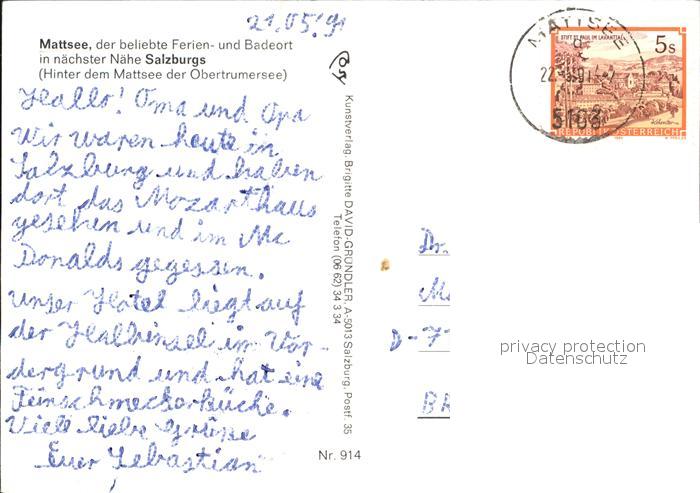 21.05.91
Mattsee, der beliebte Ferien- und Badeort
in nächster Nähe Salzburgs
(Hinter dem Mattsee der Obertrumersee)
Hallo! Oma und Opa
Wir waren heute in
Salzburg und haben
dort das Mozarthaus
gesehen und im Mc
Donalds gegessen.
Unser Hotel liegt auf
der Halbinsel im Vor-
dergrund und hat eine
Feinschmeckerküche.
Viele liebe Grüße
Euer Sebastian
Kunstverlag, Brigitte DAVID-GRÜNDLER, A-5013 Salzburg, Postf. 35
Telefon (06 62) 34 3 34
Nr. 914
MATTSEE
5163
STIFT ST. PAUL IM LAVANTTAL
5 S
REPUBLIK ÖSTERREICH
Dr.
D-7
privacy protection
Datenschutz